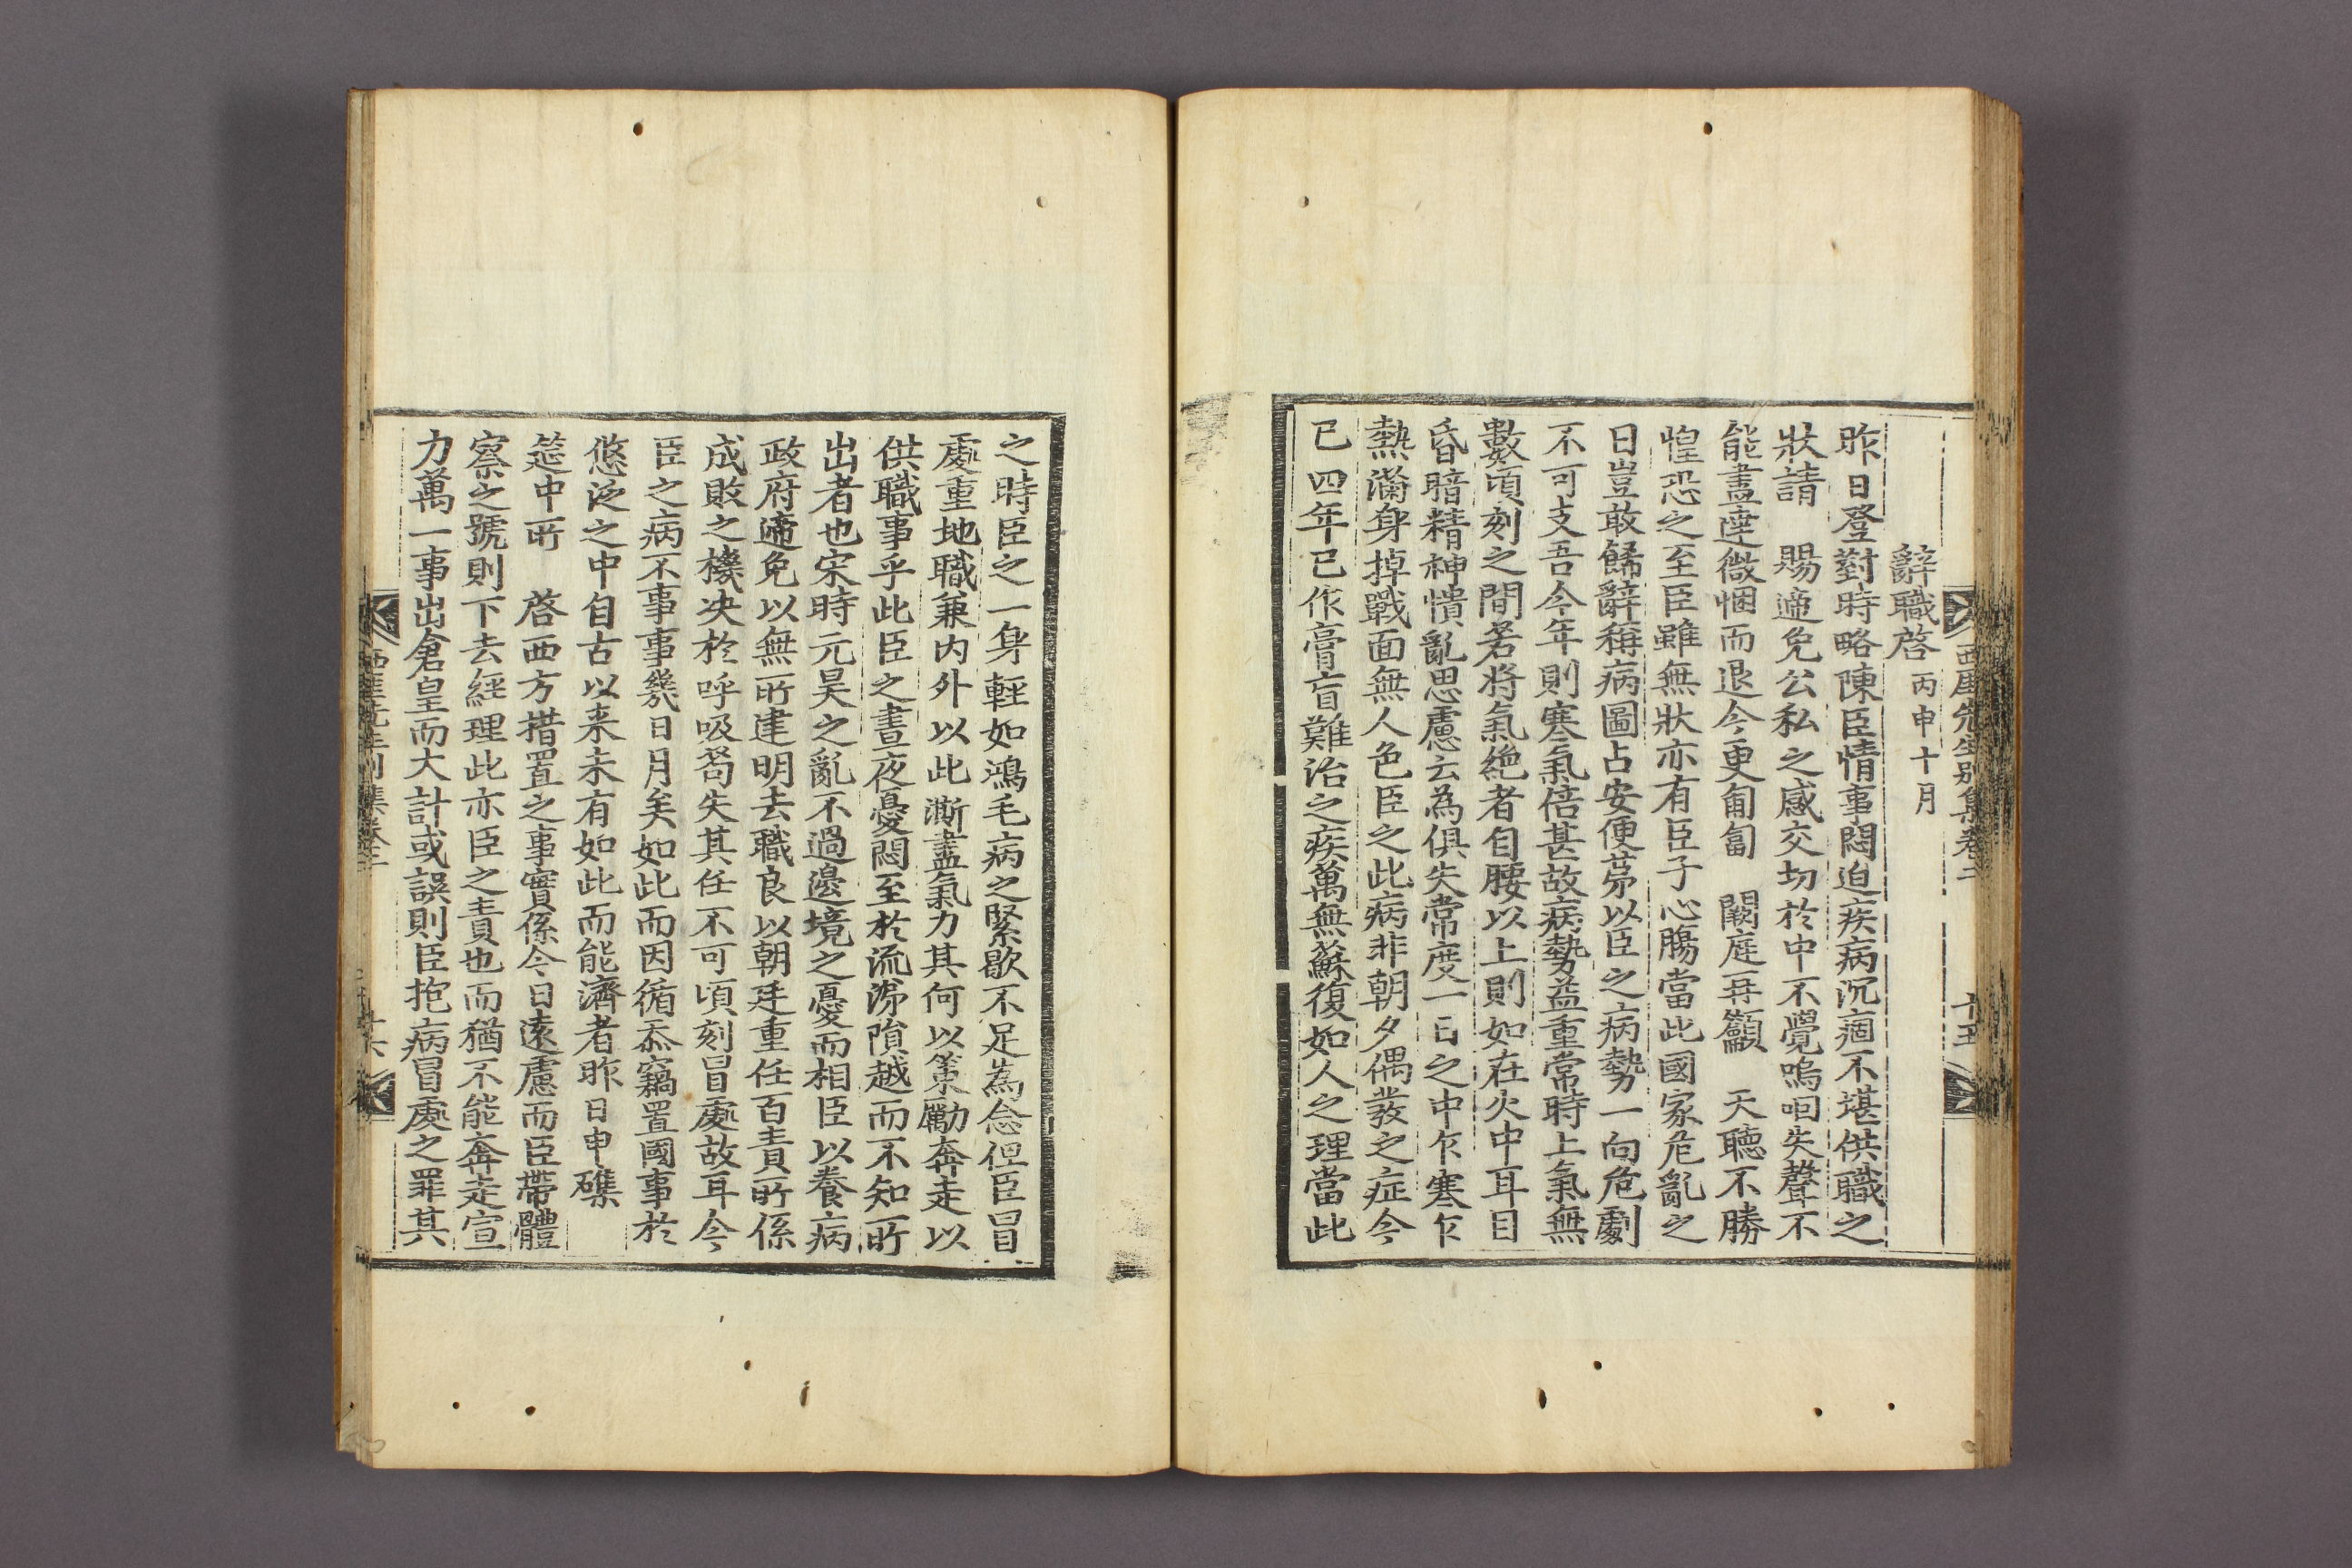 西厓先生別集卷二
十五
辭職啓 丙申十月
昨日登對時略陳臣情事悶迫疾病沉痼不堪供職之
狀請 賜遆免公私之感交切於中不覺嗚咽失聲不
能盡達微悃而退今更匍匐 闕庭再籲 天聽不勝
惶恐之至臣雖無狀亦有臣子心膓當此國家危亂之
日豈敢餙辭稱病圖占安便苐以臣之病勢一向危劇
不可支吾今年則寒氣倍甚故病勢益重常時上氣無
數頃刻之間若將氣絶者自腰以上則如在火中耳目
昏暗精神憒亂思慮云為俱失常度一日之中乍寒乍
熱滿身掉戰面無人色臣之此病非朝夕偶發之症今
已四年已作膏盲難治之疾萬無蘇復如人之理當此
之時臣之一身輕如鴻毛病之緊歇不足為念但臣冒
處重地職兼内外以此澌盡氣力其何以策勵奔走以
供職事乎此臣之晝夜憂悶至於流涕隕越而不知所
出者也宋時元昊之亂不過邊境之憂而相臣以養病
政府遆免以無所建明去職良以朝廷重任百責所係
成敗之機决於呼吸苟失其任不可頃刻冒處故耳今
臣之病不事事幾日月矣如此而因循忝竊置國事於
悠泛之中自古以来未有如此而能濟者昨日申磼
筵中所 啓西方措置之事實係今日遠慮而臣帶體
察之號則下去經理此亦臣之責也而猶不能奔走宣
力萬一事出倉皇而大計或誤則臣抱病冒處之罪其